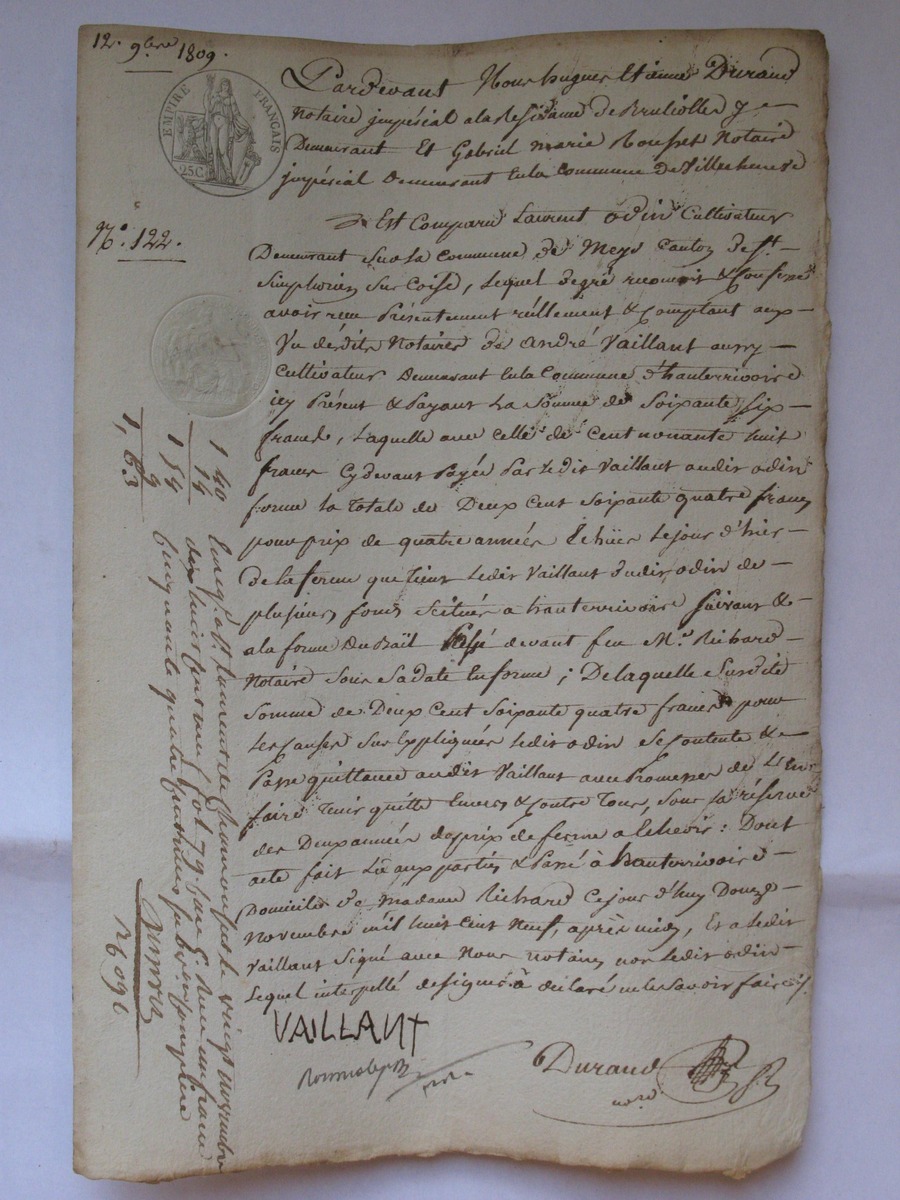 12. 9bre 1809.
EMPIRE FRANÇAIS
25C
N°. 122.
Pardevant Nous hugues Etienne Durand
Notaire jmpérial a la Residance de Bruliolles y
Demeurant Et Gabriel marie Notaire
jmpérial Demeurant En la Commune de Villecheneve
Est Comparu Laurent odin Cultivateur
Demeurant Sur la Commune de Meys Canton de St.
Simphorien Sur Coise, Lequel de gré reconnoit & Confesse
avoir reçu Présentement réellement & Comptant aux
Vu désdits Notaires de André Vaillant aussy
Cultivateur Demeurant En la Commune d'hauterrivoire
icy Présent & Payant La Somme de Soixante Six
francs, Laquelle avec Celle de Cent nonante huit
francs Cydevant Payée Par Ledit Vaillant audit odin
forme la Totale de Deux Cent Soixante quatre francs
pour prix de quatre années Echües Le jour d'hier
de la ferme que Tient Ledit Vaillant dudit odin de
plusieurs fonds Scitués a hauterrivoire Suivant &
a la forme Du Bail Passé devant feu Me. Richard
Notaire Sous Sa date En forme ; De laquelle Susdite
Somme de Deux Cent Soixante quatre francs pour
Les Causes Sus Expliquées Ledit odin Se Contente &
Passe quittance audit Vaillant avec Promesses de L'En
faire Tenir quitte Envers & Contre Tous, Sous La réserve
des Deux années de prix de ferme a Echeoir : Dont
acte fait Lu aux parties & Passé à hauterrivoire
Domicile de Madame Richard Ce jour d'huy Douze
Novembre mil huit Cent Neuf, après midy, Et a Ledit
Vaillant Signé avec Nous notaires non Ledit odin
Lequel interpellé de Signer a déclaré ne le Savoir faire
VAILLANT
Durand
nore
1 40
14
1 54
9
1, 63
vingt novembre
dix huit cent neuf fol 79 un franc
Cinquante quatre Centimes